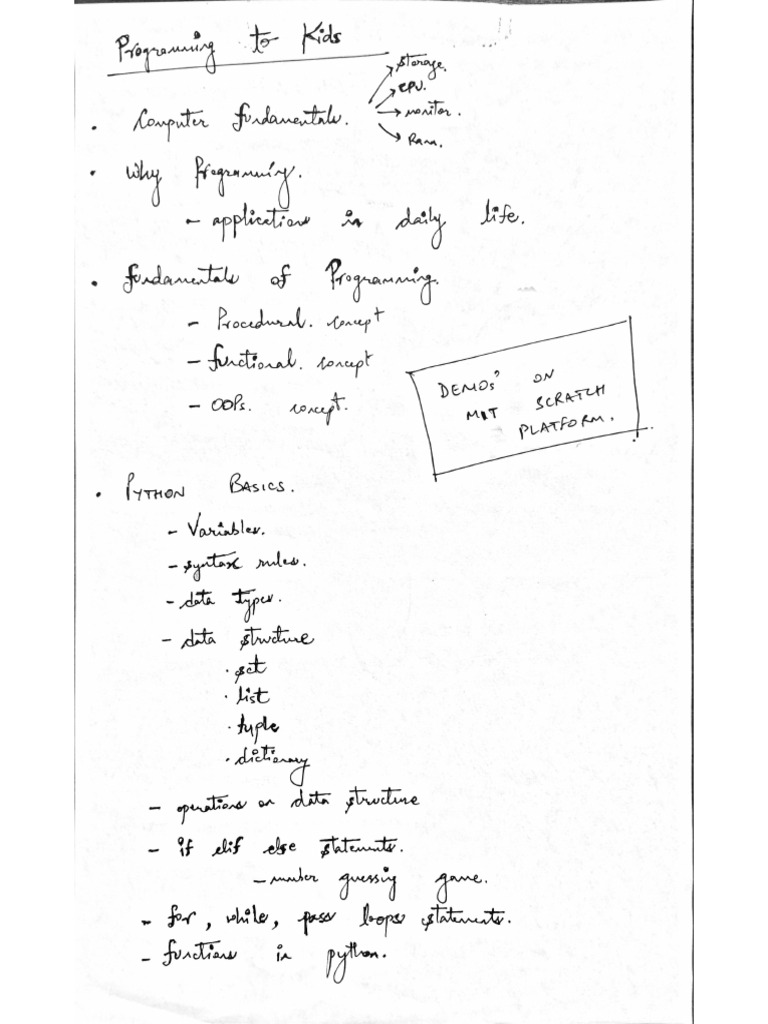 Programming to Kids
• Computer fundamentals.
→ storage.
→ CPU.
→ monitor.
→ Ram.
• Why Programming.
- applications in daily life.
• fundamentals of Programming.
- Procedural. concept
- functional. concept
- OOPs. concept.
DEMOs' ON
MIT SCRATCH
PLATFORM.
• PYTHON BASICS.
- Variables.
- syntax rules.
- data types.
- data structure
· set
· list
· tuple
· dictionary
- operations on data structure
- if elif else statements.
- number guessing game.
- for, while, pass loops statements.
- functions in python.